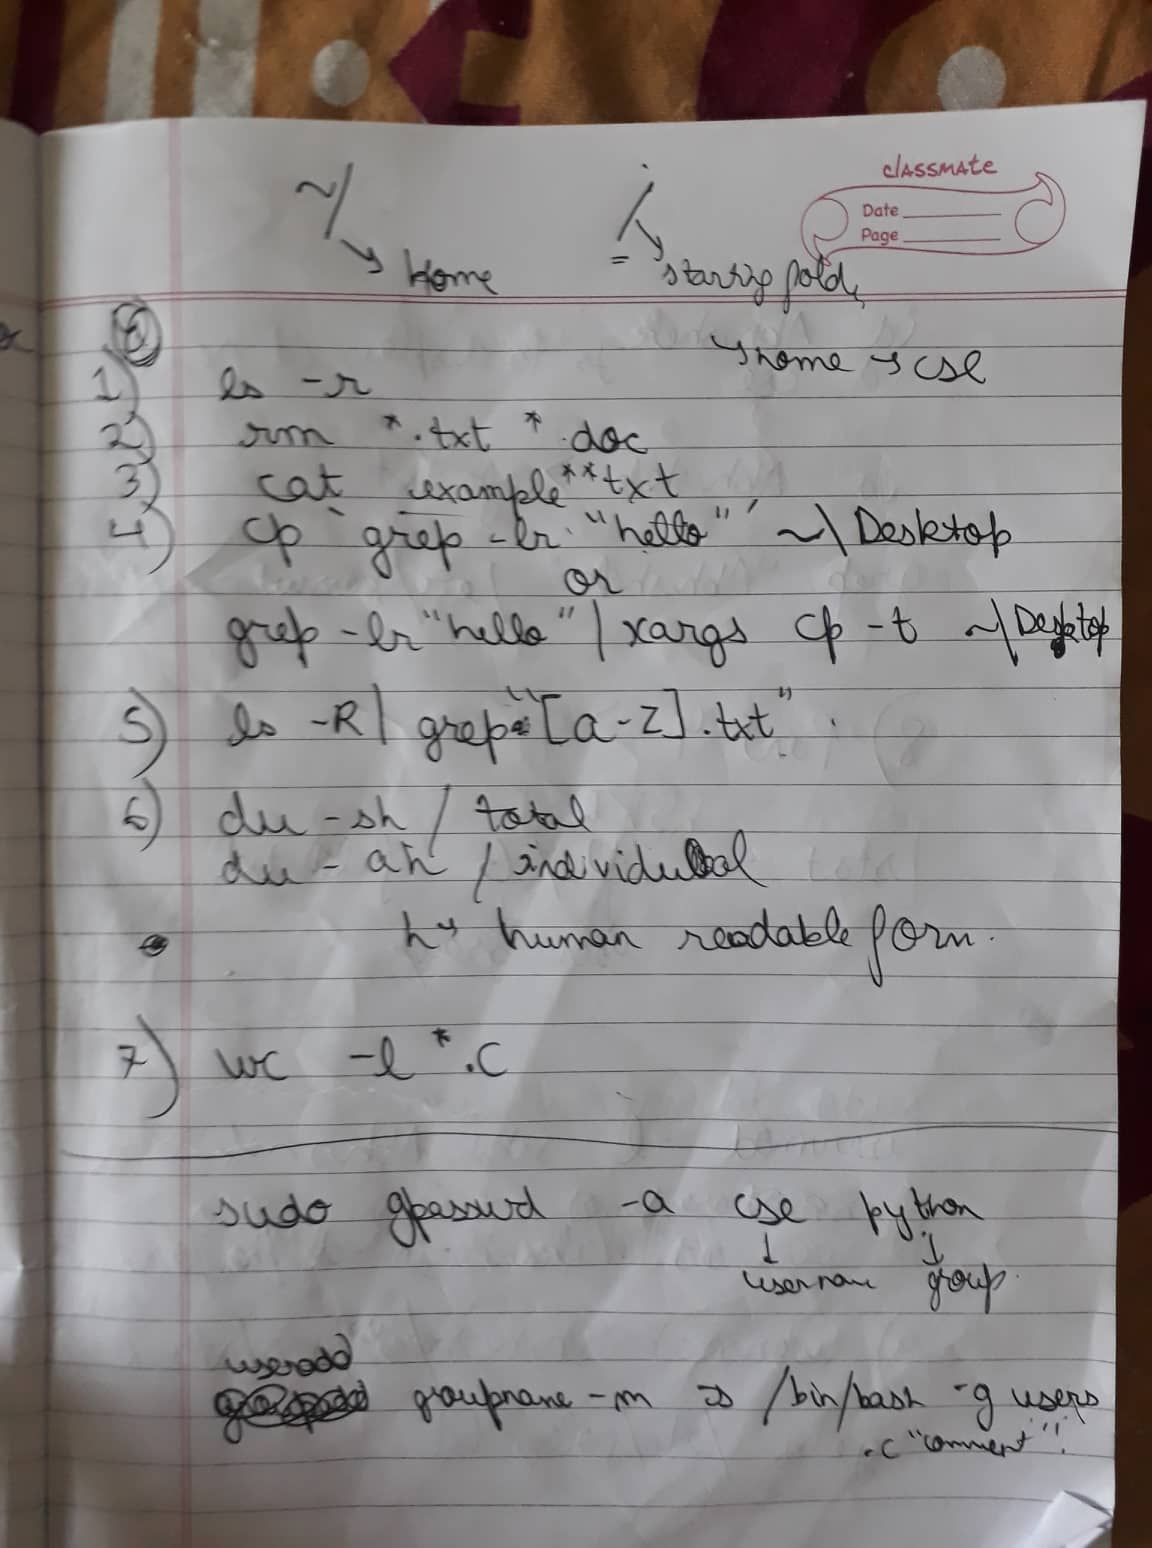 classmate
Date
Page
~/ ./
→ Home = → starting fold
→ home → cse
1) ls -r
2) rm *.txt *.doc
3) cat example**txt
4) cp `grep -lr "hello"` ~\Desktop
or
grep -lr "hello" | xargs cp -t ~\Desktop
5) ls -R | grep "[a-z].txt"
6) du -sh / total
du - ah / individual
h → human readable form.
7) wc -l *.c
sudo gpasswd -a cse python
↓ ↓
username group
useradd
groupname -m /bin/bash -g users
-c "comment"